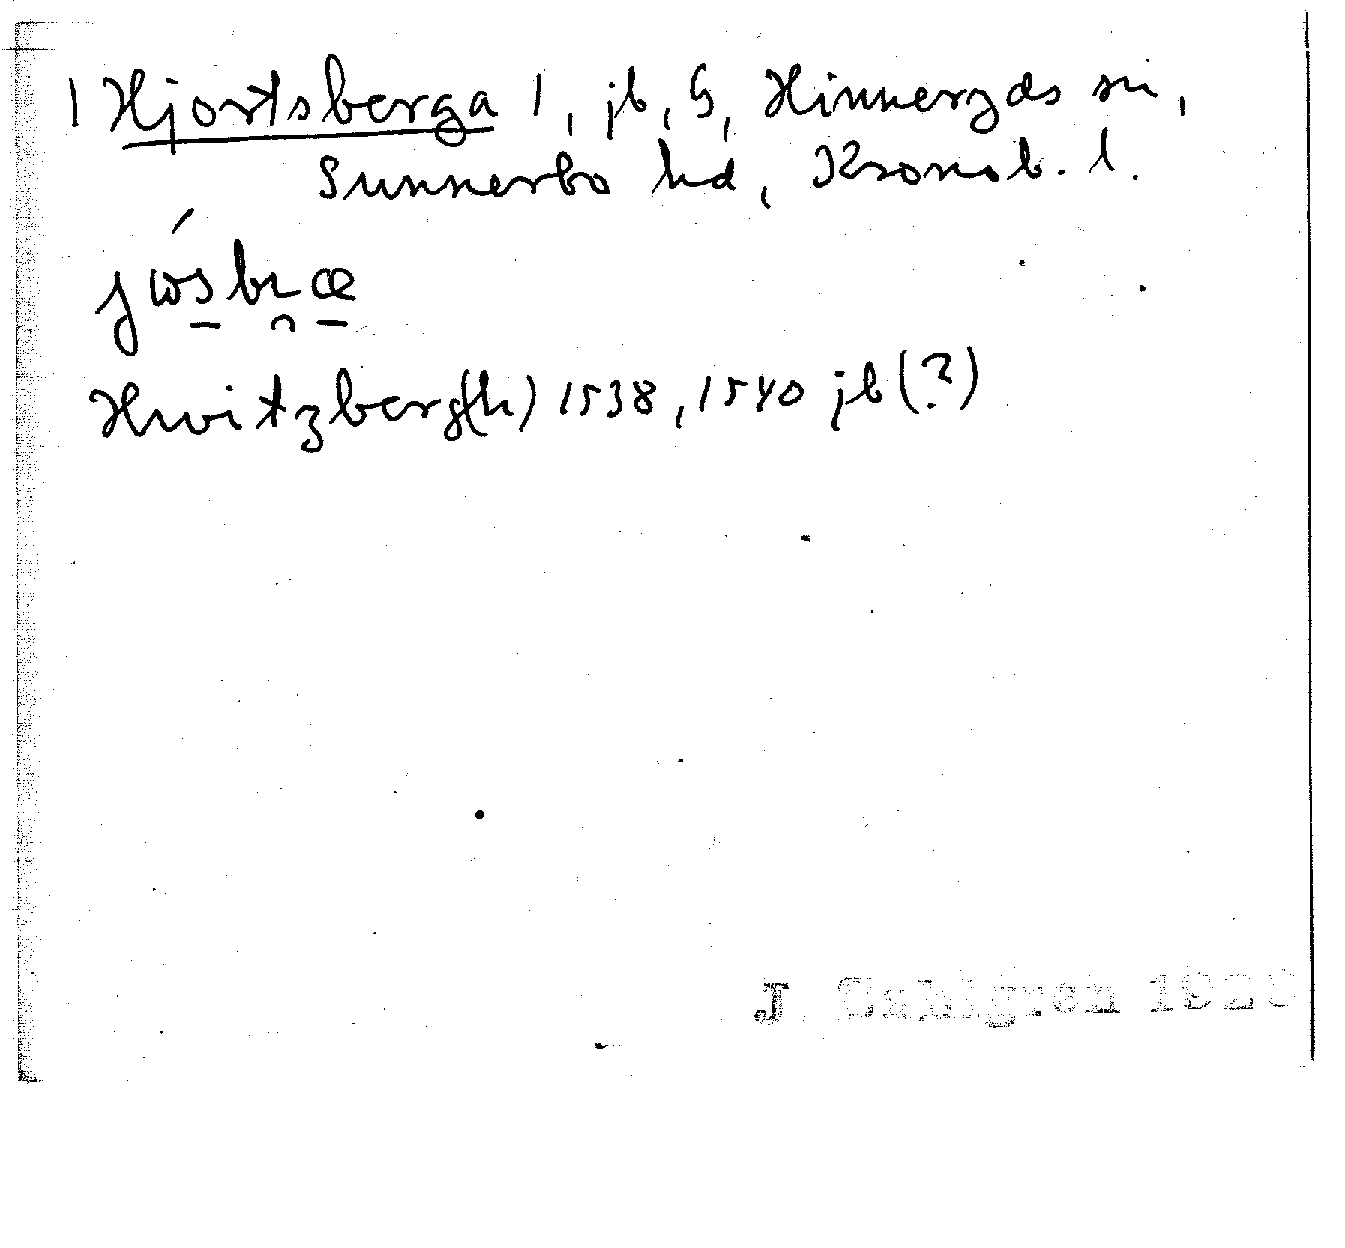 1 Hjortsberga 1, jb, G, Hinneryds sn,
Sunnerbo hd, Kronob. l.
Hwitzberg(h) 1538, 1540 jb (?)
J. Sahlgren 192